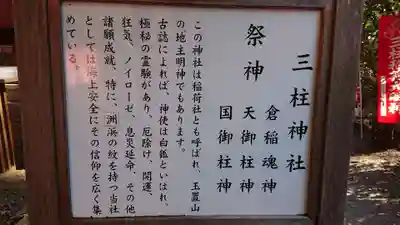 三柱神社
祭神
倉稲魂神
天御柱神
国御柱神
この神社は稲荷社とも呼ばれ、玉置山
の地主明神でもあります。
古誌によれば、神使は白狐といはれ、
極秘の霊験があり、厄除け、開運、
狂気、ノイローゼ、息災延命、その他
諸願成就、特に、洲浜の紋を持つ当社
としては海上安全にその信仰を広く集
めている。